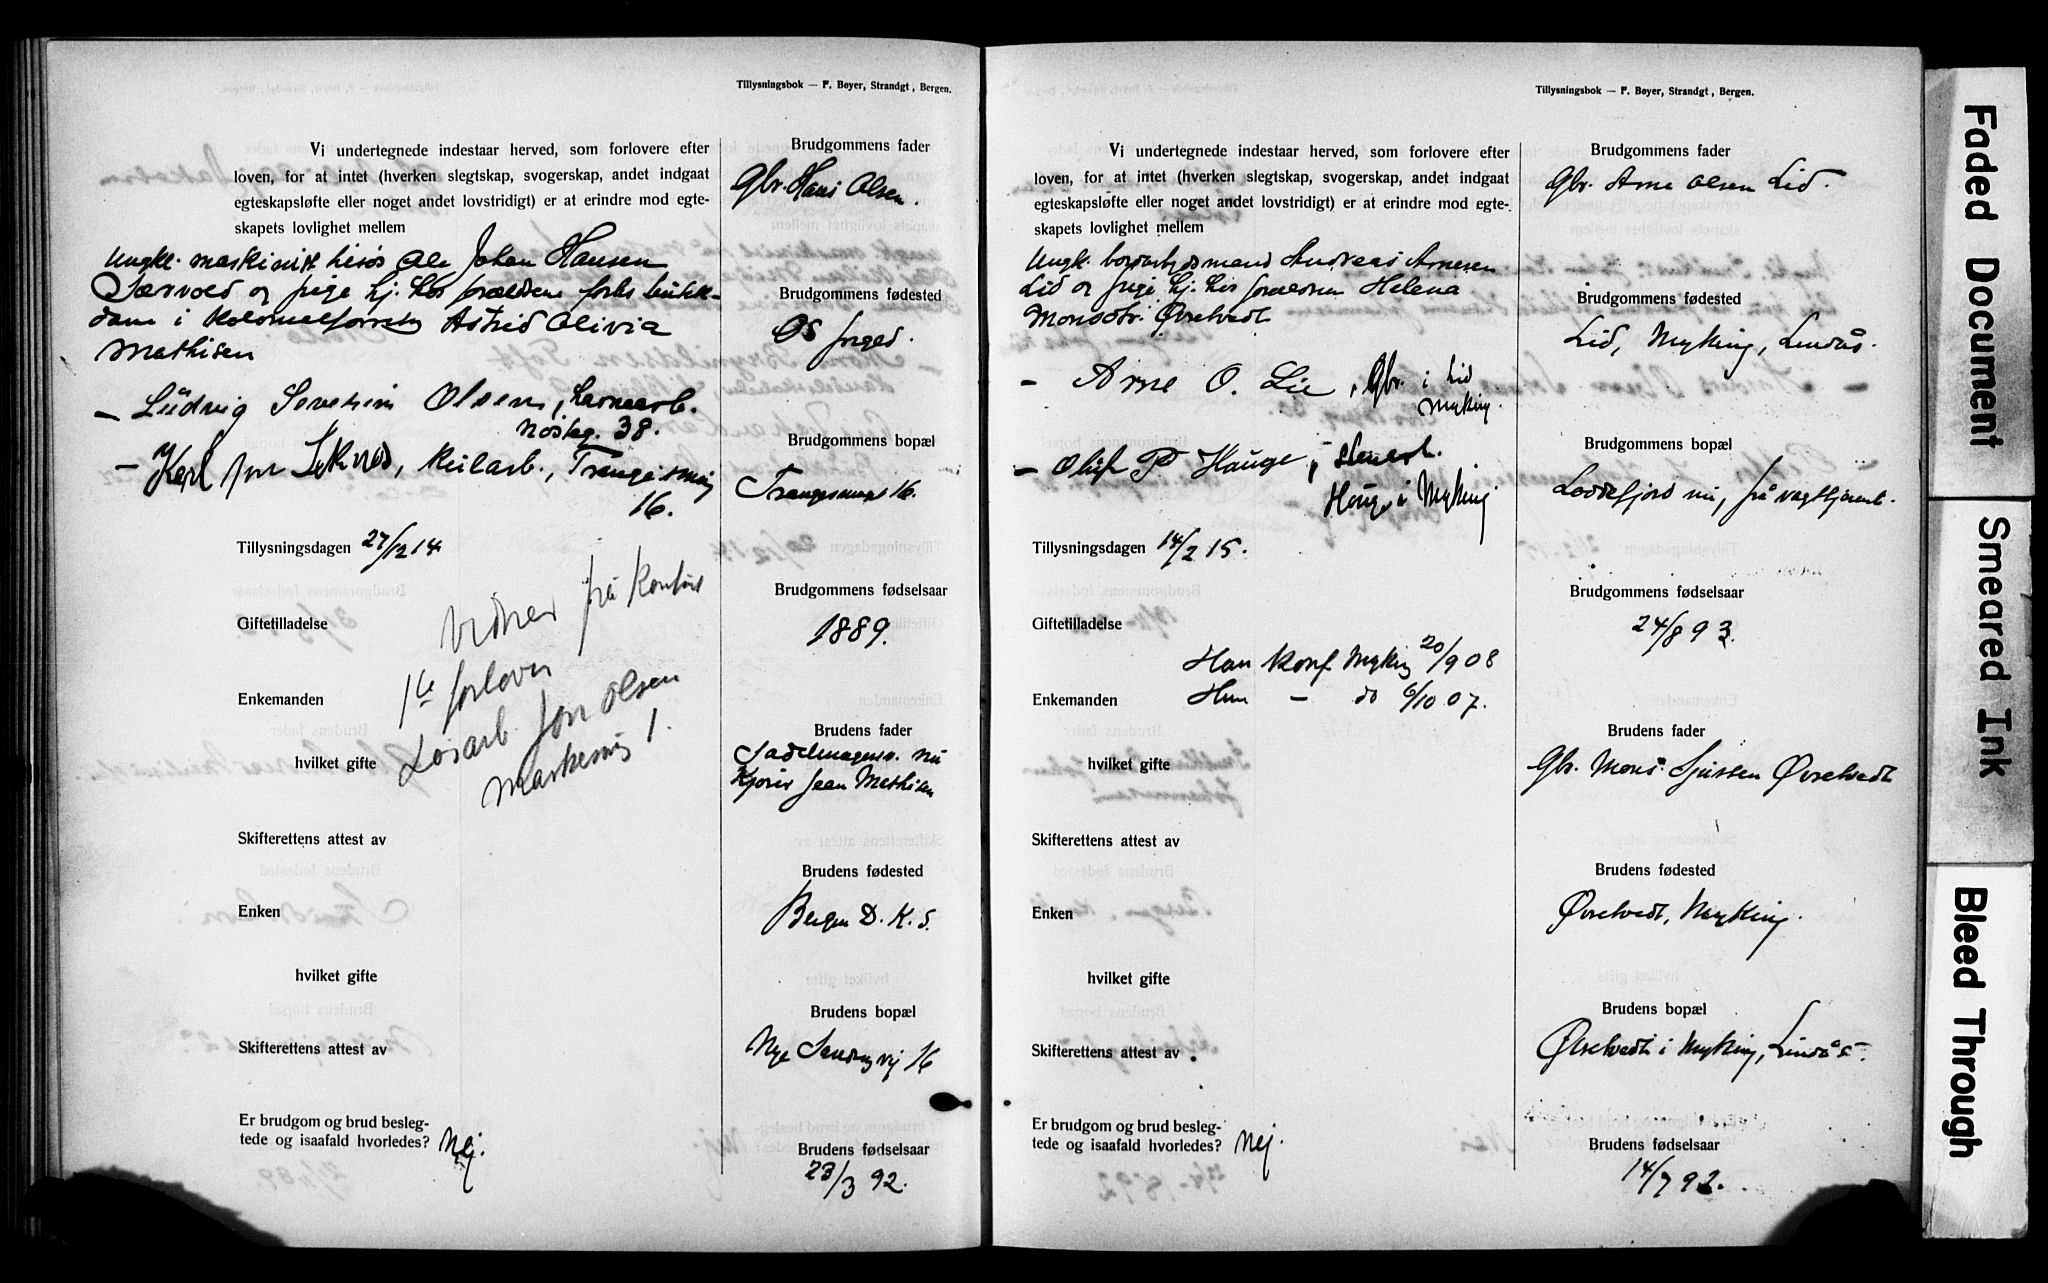 Tillysningsbok — F. Beyer, Strandgt, Bergen.
Vi undertegnede indestaar herved, som forlovere efter
loven, for at intet (hverken slegtskap, svogerskap, andet indgaat
egteskapsløfte eller noget andet lovstridigt) er at erindre mod egte-
skapets lovlighet mellem
Ungkl. maskinist Ole Johan Hansen
og pige hj. hos forældrene forh. butik-
dame i Astrid Olivia
Mathisen
— Ludvig Severin Olsen,
Nösteg. 38.
— Karl
16.
Tillysningsdagen 27/12 14
Giftetilladelse
Enkemanden
hvilket gifte
Vidner fra kontor
1te forlover
Løsarb. Jon Olsen
1.
Skifterettens attest av
Enken
hvilket gifte
Skifterettens attest av
Er brudgom og brud besleg-
tede og isaafald hvorledes? Nej.
Brudgommens fader
Gbr. Hans Olsen.
Brudgommens fødested
Os prgd.
Brudgommens bopæl
16.
Brudgommens fødselsaar
1889.
Brudens fader
Sadelmagersv. nu
Jean Mathisen
Brudens fødested
Bergen D. K. S.
Brudens bopæl
Nye Sandvigsvej 16
Brudens fødselsaar
23/3 92.
Tillysningsbok — F. Beyer, Strandgt, Bergen.
Vi undertegnede indestaar herved, som forlovere efter
loven, for at intet (hverken slegtskap, svogerskap, andet indgaat
egteskapsløfte eller noget andet lovstridigt) er at erindre mod egte-
skapets lovlighet mellem
Ungk. Andreas Arnesen
Lid og pige hj. hos forældrene Helena
Monsdtr. Øvretvedt
— Arne O. Lie, Gbr. i Lid
Myking.
— Oluf P. Hauge,
Hauge i Myking
Tillysningsdagen 14/2 15.
Giftetilladelse
Han konf Myking 20/9 08
Enkemanden
Hun — do 6/10 07.
hvilket gifte
Skifterettens attest av
Enken
hvilket gifte
Skifterettens attest av
Er brudgom og brud besleg-
tede og isaafald hvorledes? Nej.
Brudgommens fader
Gbr. Arne Olsen Lid.
Brudgommens fødested
Lid, Myking, Lindås.
Brudgommens bopæl
Loddefjord nu, på vagttjeneste.
Brudgommens fødselsaar
24/8 93.
Brudens fader
Gbr. Mons Sjursen Øvretvedt
Brudens fødested
Øvretvedt, Myking.
Brudens bopæl
Øvretvedt i Myking, Lindås.
Brudens fødselsaar
14/7 92.
Faded Document
Smeared Ink
Bleed Through